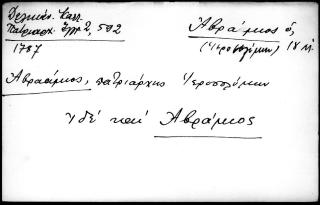 Δελικάν. Κατ.
Πατριαρχ. Ἐγγρ 2, 592
1787
Ἀβράμιος ὁ,
(Ἱεροσολύμων) 18 αἰ.
Αβράμιος, πατριάρχης Ἱεροσολύμων
ἰδέ καί Ἀβράμιος